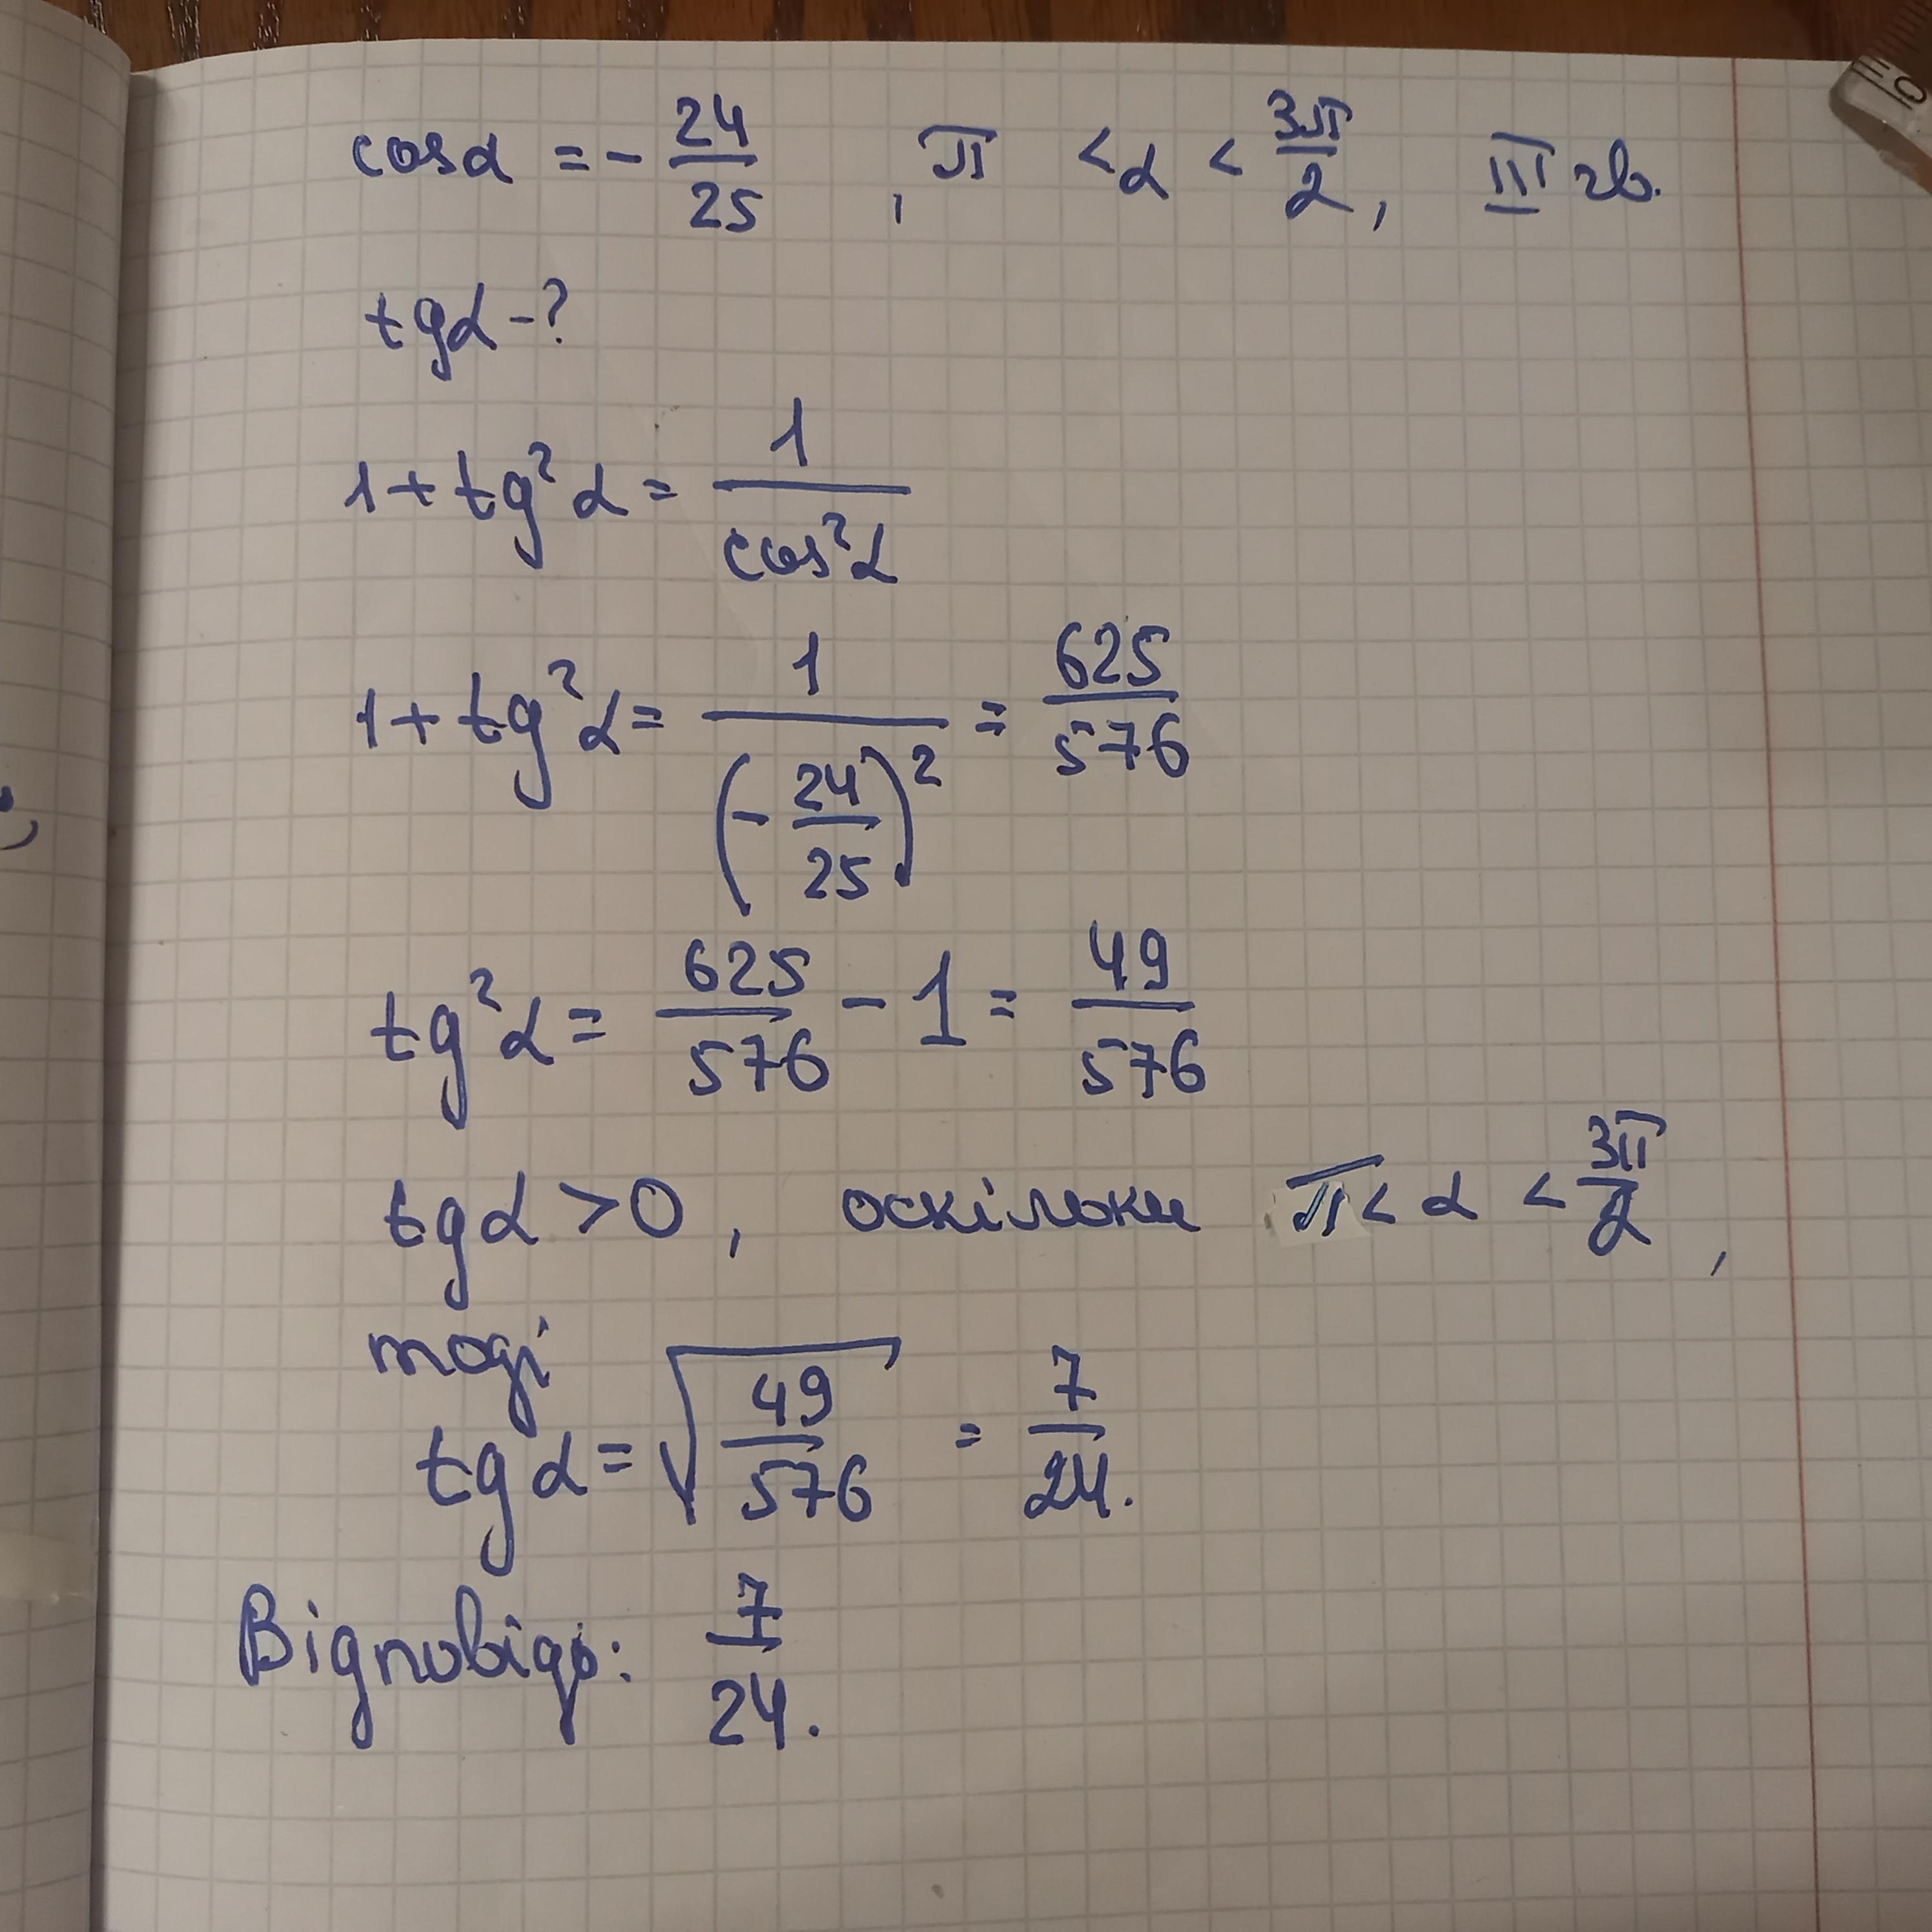 cosα = - 24/25, π < α < 3π/2, III чв.
tgα - ?
1 + tg²α = 1/cos²α
1 + tg²α = 1/(- 24/25)² = 625/576
tg²α = 625/576 - 1 = 49/576
tgα > 0, оскільки π < α < 3π/2,
тоді
tgα = √(49/576) = 7/24.
Відповідь: 7/24.